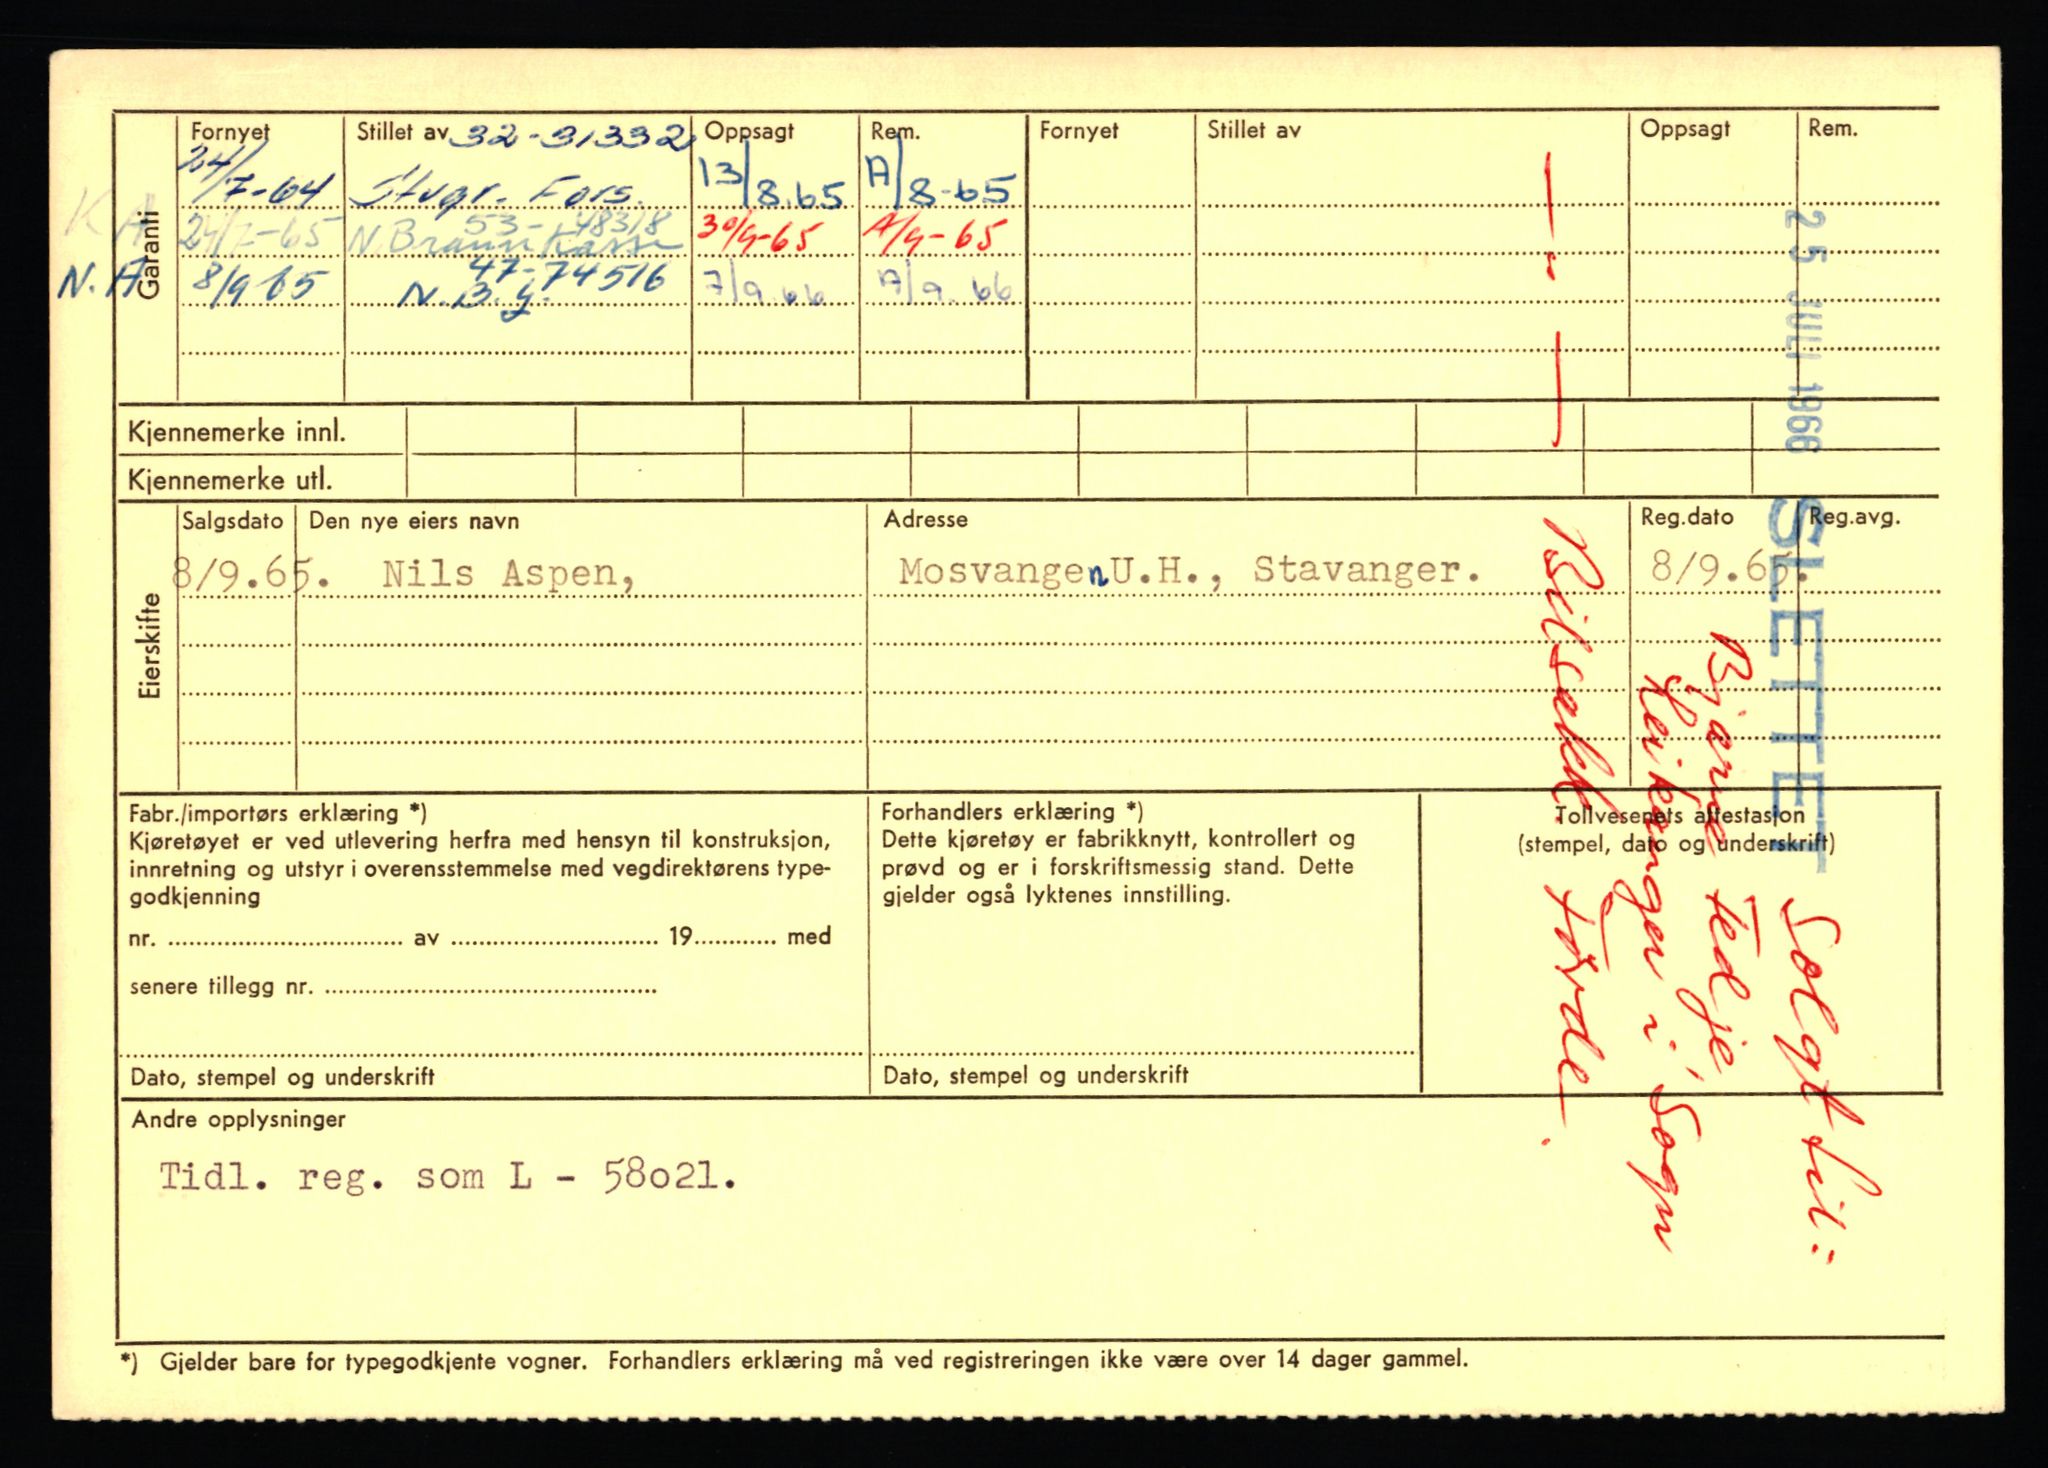 Garanti
Fornyet Stillet av 32-31332 Oppsagt Rem. Fornyet Stillet av Oppsagt Rem.
24/7-64 Stvgr. Fors. 13/8.65 A/8-65
K.A 24/7-65 N.Brannkasse 53-48318 30/9-65 A/9-65
N.A 8/9 65 N.B.g. 47-74516 7/9.66 A/9.66
Kjennemerke innl.
Kjennemerke utl.
Eierskifte
Salgsdato Den nye eiers navn Adresse Reg.dato Reg.avg.
8/9.65. Nils Aspen, Mosvangen U.H., Stavanger. 8/9.65.
25 JULI 1966 SLETTET
Solgt til:
Bjarne Tedje,
Leikanger i Sogn
— " — Bilsakk. Førde.
Fabr./importørs erklæring *)
Kjøretøyet er ved utlevering herfra med hensyn til konstruksjon,
innretning og utstyr i overensstemmelse med vegdirektørens type-
godkjenning
nr. ........ av ........ 19........ med
senere tillegg nr. ........
Dato, stempel og underskrift
Forhandlers erklæring *)
Dette kjøretøy er fabrikknytt, kontrollert og
prøvd og er i forskriftsmessig stand. Dette
gjelder også lyktenes innstilling.
Dato, stempel og underskrift
Tollvesenets attestasjon
(stempel, dato og underskrift)
Andre opplysninger
Tidl. reg. som L - 58021.
*) Gjelder bare for typegodkjente vogner. Forhandlers erklæring må ved registreringen ikke være over 14 dager gammel.